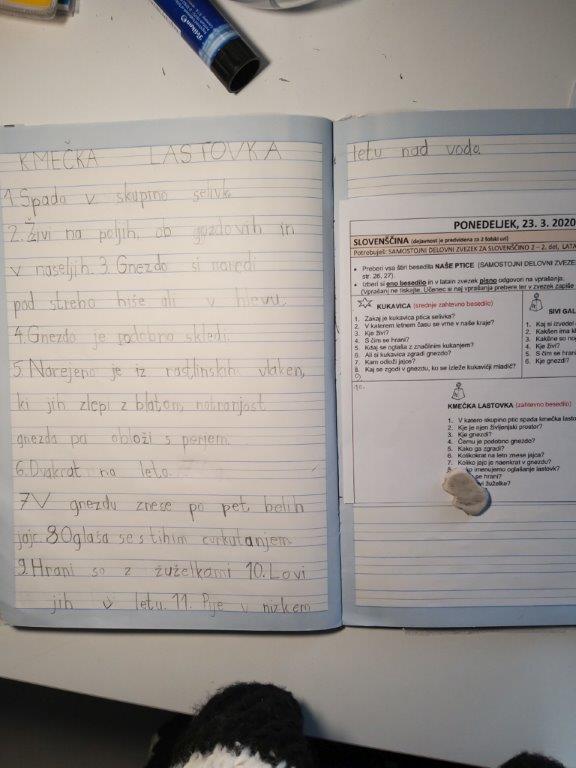 KMEČKA LASTOVKA
1. Spada v skupino selivk.
2. Živi na poljih, ob gozdovih in
v naseljih. 3. Gnezdo si naredi
pod streho hiše ali v hlevu.
4. Gnezdo je podobno skledi.
5. Narejeno je iz rastlinskih vlaken,
ki jih zlepi z blatom, notranjost
gnezda pa obloži s perjem.
6. Dvakrat na leto.
7 V gnezdu znese po pet belih
jajc. 8 Oglaša se s tihim cvrkutanjem
9. Hrani se z žuželkami 10. Lovi
jih v letu. 11. Pije v nizkem
letu nad vodo
PONEDELJEK, 23. 3. 2020
SLOVENŠČINA (dejavnost je predvidena za 2 šolski uri)
Potrebuješ: SAMOSTOJNI DELOVNI ZVEZEK ZA SLOVENŠČINO 2 – 2. del,
Preberi vsa štiri besedila NAŠE PTICE (SAMOSTOJNI DELOVNI
str. 26, 27).
Izberi si eno besedilo in v zvezek pisno odgovori na vprašanja.
(Vprašanj ne tiskajte. Učenec si naj vprašanja prebere ter v zvezek zapiše
KUKAVICA (srednje zahtevno besedilo)
1. Zakaj je kukavica ptica selivka?
2. V katerem letnem času se vrne v naše kraje?
3. Kje živi?
4. S čim se hrani?
5. Kdaj se oglaša z značilnim kukanjem?
6. Ali si kukavica zgradi gnezdo?
7. Kam odloži jajce?
8. Kaj se zgodi v gnezdu, ko se izleže kukavičji mladič?
SIVI
1. Kaj si
2. Kakšen ima
3. Kakšne so
4. Kje živi?
5. S čim se
6. Kje gnezdi?
KMEČKA LASTOVKA (zahtevno besedilo)
1. V katero skupino ptic spada kmečka
2. Kje je njen življenjski prostor?
3. Kje gnezdi?
4. Čemu je podobno gnezdo?
5. Kako ga zgradi?
6. Kolikokrat na leto znese jajca?
7. Koliko jajc je naenkrat v gnezdu?
imenujemo oglašanje lastovk?
se hrani?
žuželke?